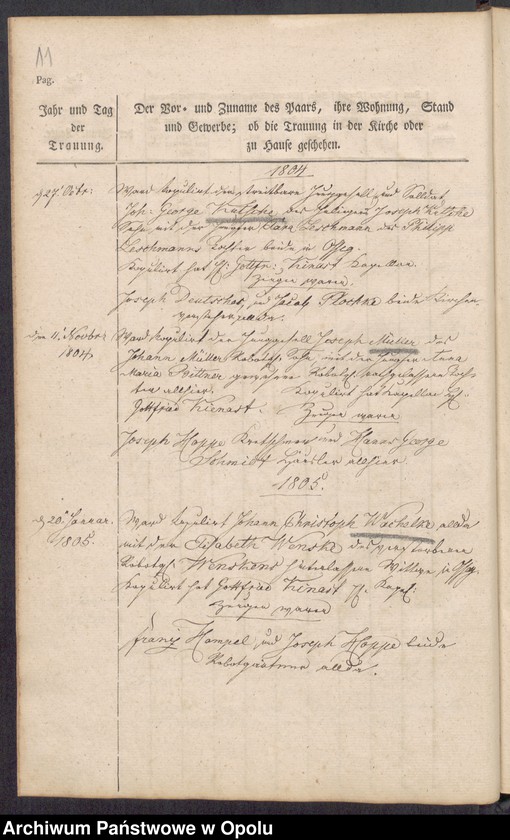 11
Pag.
Jahr und Tag
der
Trauung.
Der Vor- und Zuname des Paars, ihre Wohnung, Stand
und Gewerbe; ob die Trauung in der Kirche oder
zu Hause geschehen.
1804
d 27. Octr:
Ward copulirt der Junggesell und Soldat
Joh: George Kutsche des Joseph Kutsche
Sohn mit der Jungfer Clara Leschmann des Philipp
Leschmanns Tochter beide in Osseg.
Kopulirt hat H: Gottfr: Kienast Kapellan.
Zeugen waren
Joseph Deutscher und Jacob Plochke beide Kirchen-
den 11. Novber
1804
Ward copulirt der Junggesell Joseph Müller des
Johann Müller Sohn mit der Jungfer Anna
Maria Bittner
allhier. Kopulirt hat Kapellan H:
Gottfried Kienast. Zeugen waren
Joseph Hoppe Kretschmer und Hanns George
Schmidt Häusler allhier.
1805.
d 20. Januar.
1805.
Ward copulirt Johann Christoph Wachelke allda
mit der Elisabeth Wenske des verstorbenen
Wenskens hinterlassene Wittwe in Osseg.
Kopulirt hat Gottfried Kienast H. Kapel:
Zeugen waren
Franz Hampel, und Joseph Hoppe beide
Robotgärtner allda.
Archiwum Państwowe w Opolu